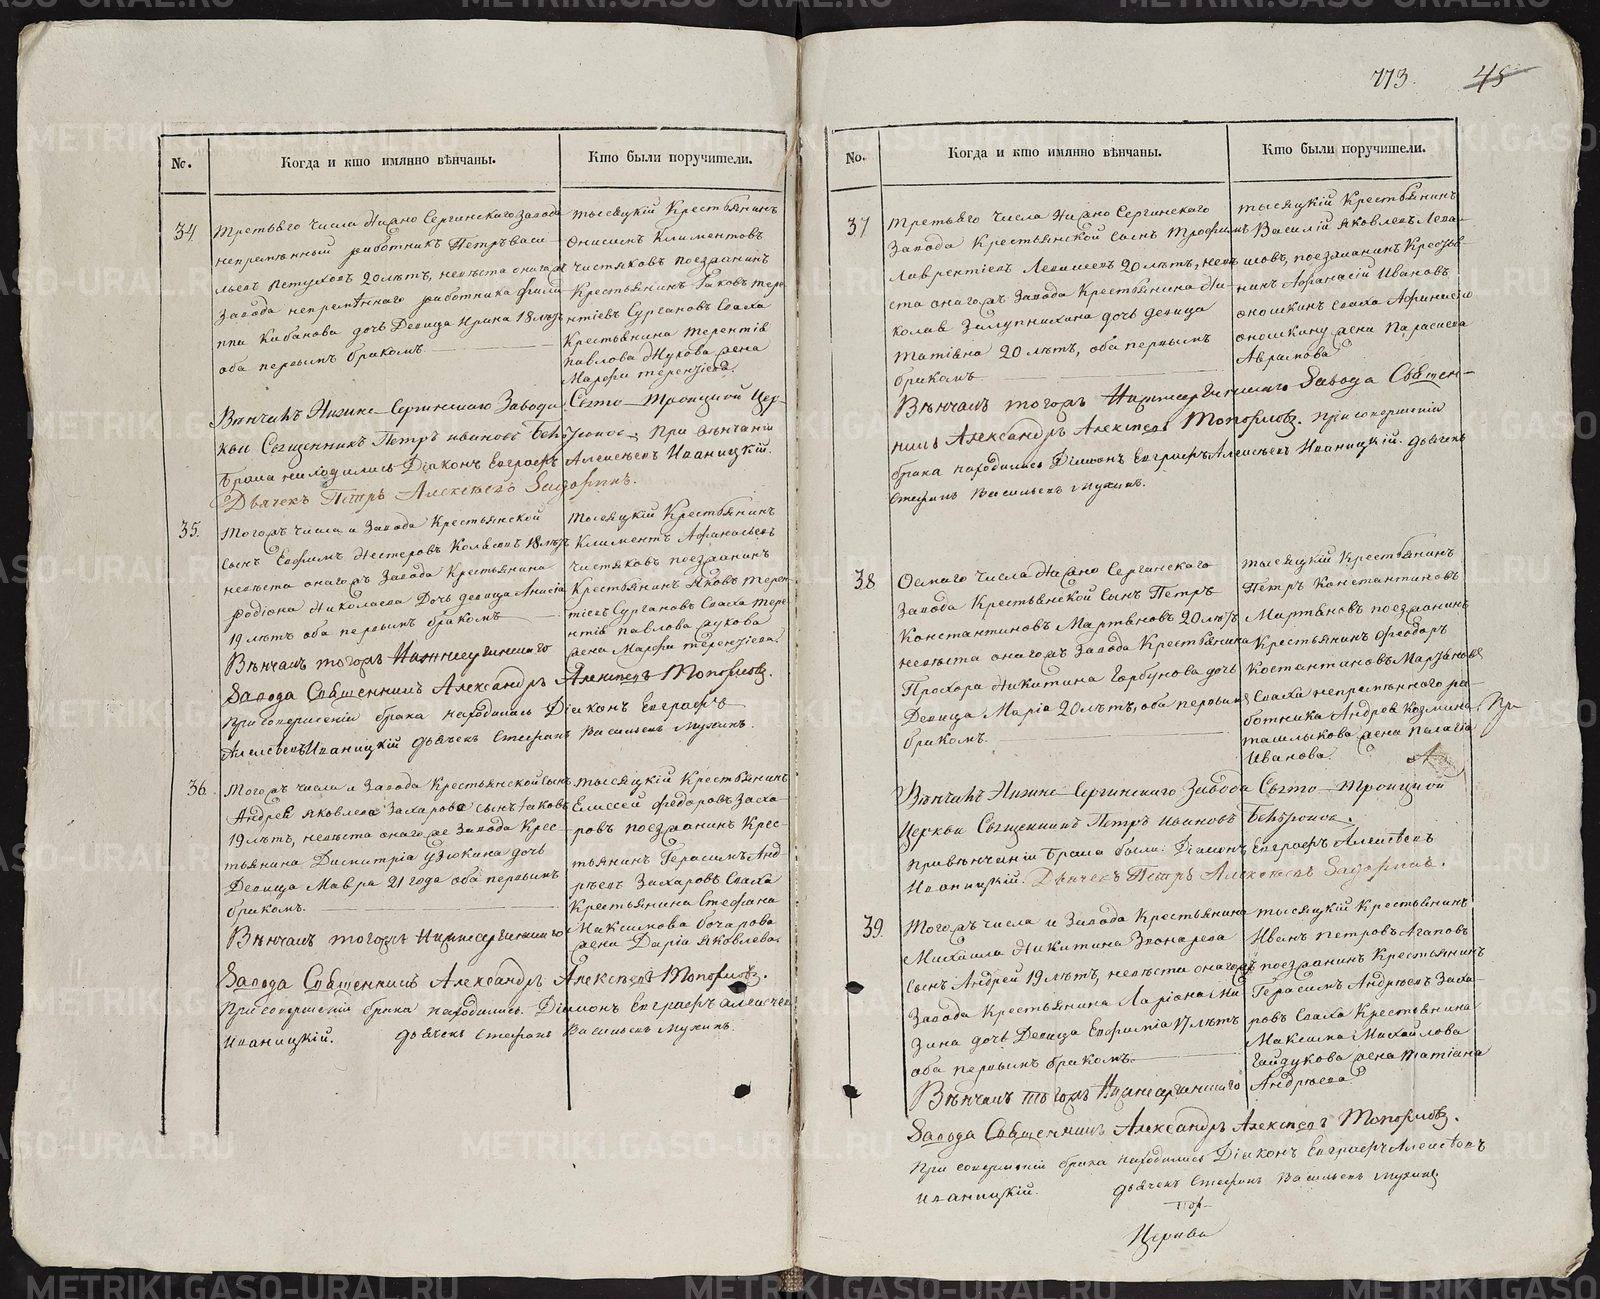 773. 45
№. Когда и кто имянно вѣнчаны. Кто были поручители.
34
третьяго числа Нижно Сергинскаго Завода
непремѣнный работникъ Петръ Васи-
льевъ Петуховъ 20 лѣтъ, невѣста онагожъ
Завода непремѣннаго работника Фили
ппа Кабанова дочь Девица Ирина 18 лѣтъ
оба первымъ бракомъ
тысяцкій Крестьянинъ
Онисимъ Климентовъ
Чистяковъ поезжанинъ
Крестьянинъ Іаковъ тере
нтіевъ Сургановъ Сваха
Крестьянина терентія
павлова Жукова жена
Марфа терентіева.
Вѣнчалъ Нижне-Сергинскаго Завода Свято-Троицкой Цер-
кви Священникъ Петръ Ивановъ При вѣнчаніи
брака находились Діаконъ Евграфъ Алексѣевъ Иваницкій.
Дьячекъ Петръ Алексѣевъ Задоринъ.
35.
тогожъ числа и Завода Крестьянской
сынъ Ефимъ Нестеровъ 18 лѣтъ
невѣста онагожъ Завода Крестьянина
Родіона Николаева Дочь девица Анисія
19 лѣтъ оба первымъ бракомъ
тысяцкій Крестьянинъ
Климентъ Афанасьевъ
Чистяковъ поезжанинъ
Крестьянинъ Яковъ терен-
тіевъ Сургановъ Сваха тере-
нтія павлова жукова
жена Марфа терентіева.
Вѣнчалъ тогожъ Нижнесергинскаго
Завода Священникъ Александръ Алексѣевъ Топорковъ.
При совершеніи брака находились Діаконъ Евграфъ
Алексѣевъ Иваницкій дьячекъ Стефанъ Васильевъ Мухинъ.
36.
Тогожъ числа и Завода Крестьянской сынъ
Андрея Яковлева Захарова сынъ Іаковъ
19 лѣтъ, невѣста онагоже Завода Крес-
тьянина Димитрія Узюкина дочь
Девица Мавра 21 года оба первымъ
бракомъ.
тысяцкій Крестьянинъ
Елиссей Федоровъ Заха-
ровъ поезжанинъ Крес-
тьянинъ Герасимъ Анд
рѣевъ Захаровъ Сваха
Крестьянина Стефана
Максимова бочарова
жена Дарія Яковлева
Вѣнчалъ тогожъ Нижнесергинскаго
Завода Священникъ Александръ Алексѣевъ Топорковъ.
При совершеніи брака находились Діаконъ Евграфъ Алексѣевъ
Иваницкій. дьячекъ Стефанъ Васильевъ Мухинъ.
No. Когда и кто имянно вѣнчаны. Кто были поручители.
37
третьяго числа Нижно Сергинскаго
Завода Крестьянской сынъ Трофимъ
Лаврентіевъ Левашевъ 20 лѣтъ, невѣ
ста онагожъ Завода Крестьянина Ни-
колая Залупнихина дочь девица
Татіана 20 лѣтъ, оба первымъ
бракомъ
тысяцкій Крестьянинъ
Василій Яковлевъ Лева-
шовъ, поезжанинъ Крестья-
нинъ Афанасій Ивановъ
оношкинъ сваха Афанасія
оношкину жена Параскева
Аврамова
Вѣнчалъ тогожъ Нижнесергинскаго Завода Священ-
никъ Александръ Алексѣевъ Топорковъ. При совершеніи
брака находились Діаконъ Евграфъ Алексѣевъ Иваницкій. дьячекъ
Стефанъ Васильевъ Мухинъ.
38
Осмаго числа Нижно Сергинскаго
Завода Крестьянской Сынъ Петръ
Константиновъ Мартьяновъ 20 лѣтъ
невѣста онагожъ Завода Крестьянина
Прохора Никитина Горбунова дочь
Девица Марія 20 лѣтъ, оба первымъ
бракомъ.
тысяцкій Крестьянинъ
Петръ Константиновъ
Мартьяновъ поезжанинъ
Крестьянинъ Феодоръ
Костантиновъ Мартьяновъ
Сваха непремѣннаго ра-
ботника Андрея Козмина
ташлыкова жена Палагія
Иванова.
Вѣнчалъ Нижне-Сергинскаго Завода Свято-Троицкой
Церкви Священникъ Петръ Ивановъ
При вѣнчаніи брака были: Діаконъ Евграфъ Алексѣевъ
Иваницкій. Дьячекъ Петръ Алексѣевъ Задоринъ.
39.
Тогожъ числа и Завода Крестьянина
Михаила Никитина Звонарева
сынъ Андрей 19 лѣтъ, невѣста онагожъ
Завода Крестьянина Ларіона
дочь Девица Евфимія 17 лѣтъ
оба первымъ бракомъ.
тысяцкій Крестьянинъ
Иванъ Петровъ Агаповъ
поезжанинъ Крестьянинъ
Герасимъ Андрѣевъ Заха
ровъ Сваха Крестьянина
Максима Михайлова
Гайдукова жена татіана
Андрѣева
Вѣнчалъ тогожъ Нижнесергинскаго
Завода Священникъ Александръ Алексѣевъ Топорковъ.
При совершеніи брака находились Діаконъ Евграфъ Алексѣевъ
Иваницкій. дьячекъ Стефанъ Васильевъ Мухинъ
Церкви
METRIKI.GASO-URAL.RU